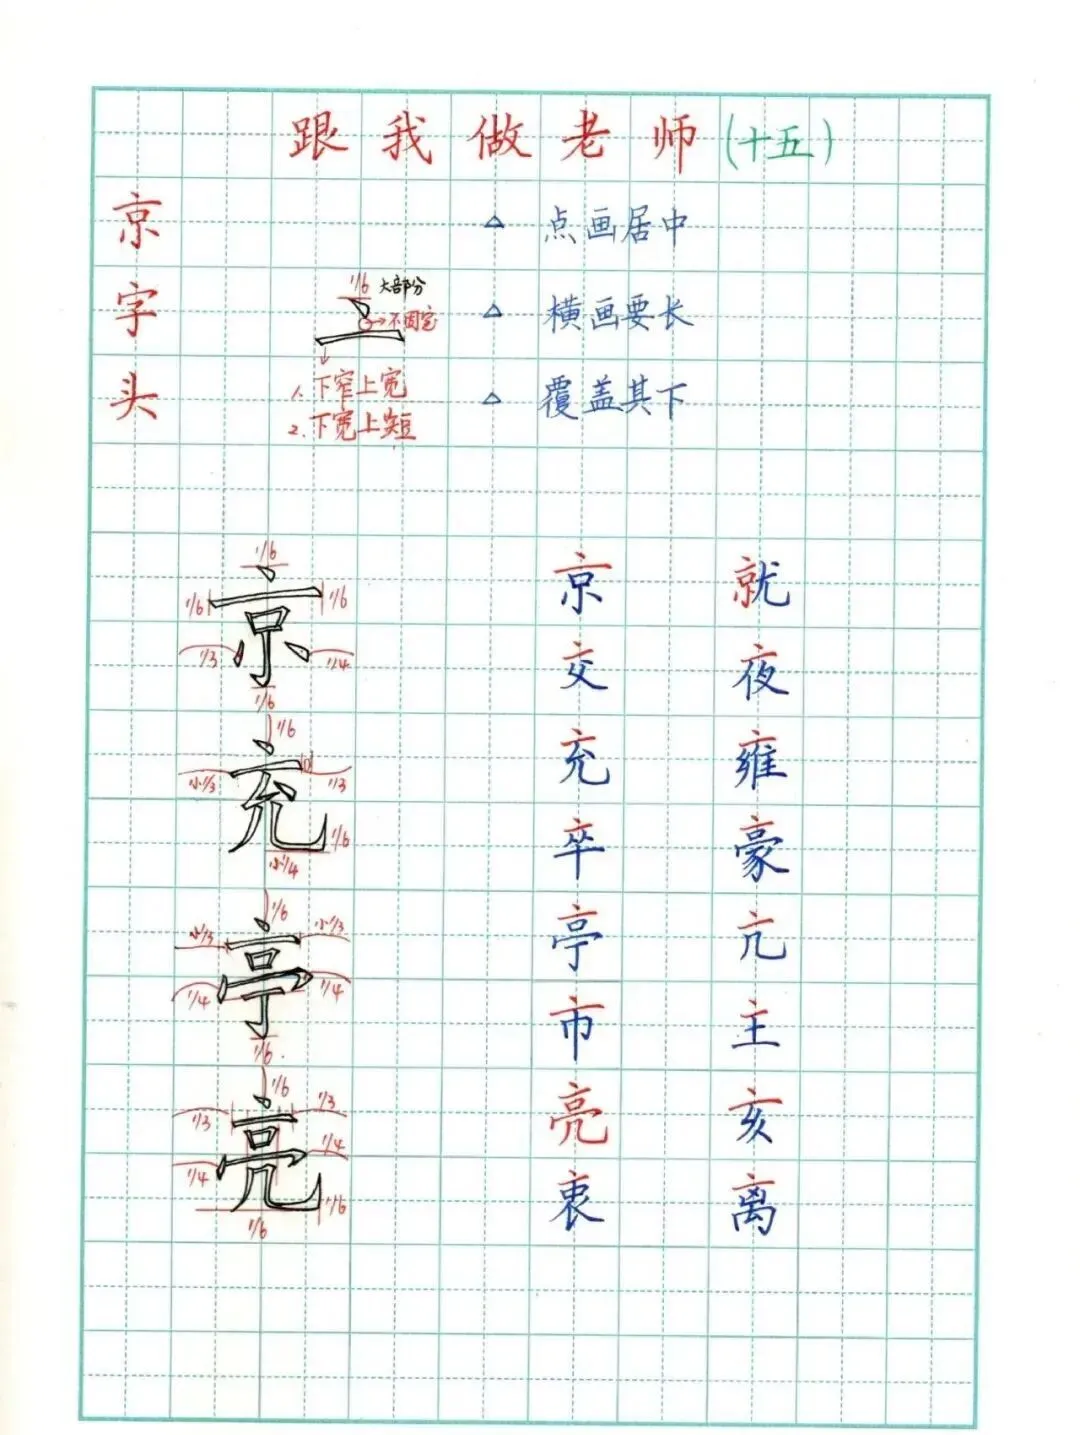 跟我做老师(十五)
京字头
1/6 大部分
不固定
1. 下窄上宽
2. 下宽上短
△ 点画居中
△ 横画要长
△ 覆盖其下
1/6
1/6 京 1/6
1/3 1/4
1/6
1/6
小1/3 充 1/3
1/6
小1/4
1/6
小1/3 亭 小1/3
1/4 1/4
1/6
1/6
1/3 亮 1/3
1/4 1/4
1/6
1/6
京 就
交 夜
充 雍
卒 豪
亭 亢
市 主
亮 亥
衷 离